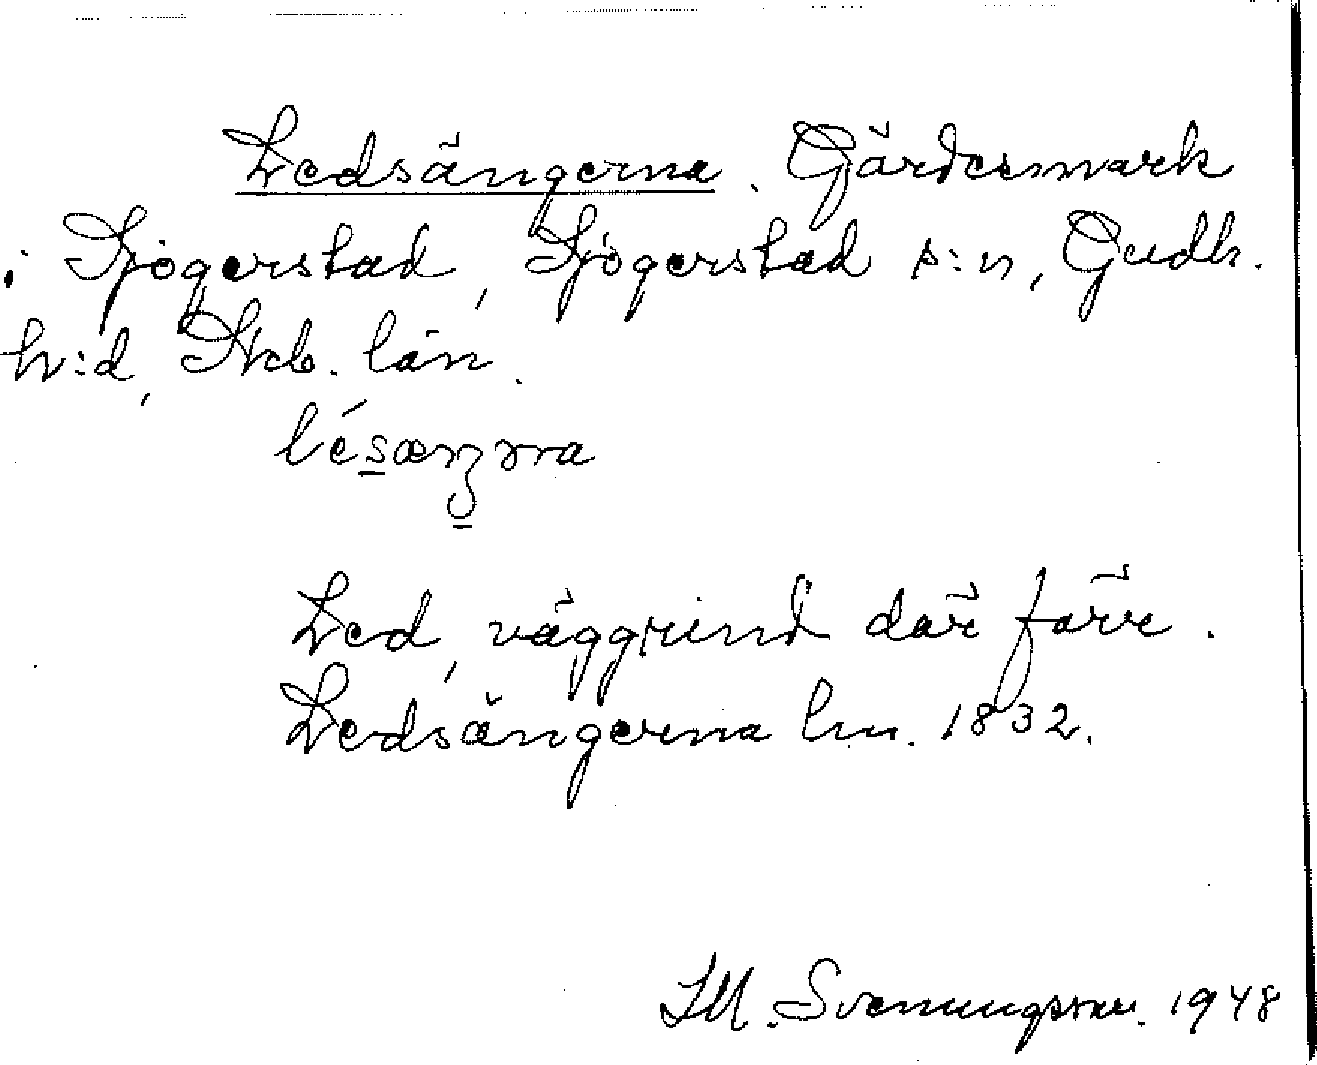 Ledsängerna. Gärdesmark
i Sjögerstad, Sjögerstad s:n, Gudh.
h:d, Skb. län.
Led, väggrind där förr.
Ledsängerna lm. 1832.
M. Svenungsson. 1948